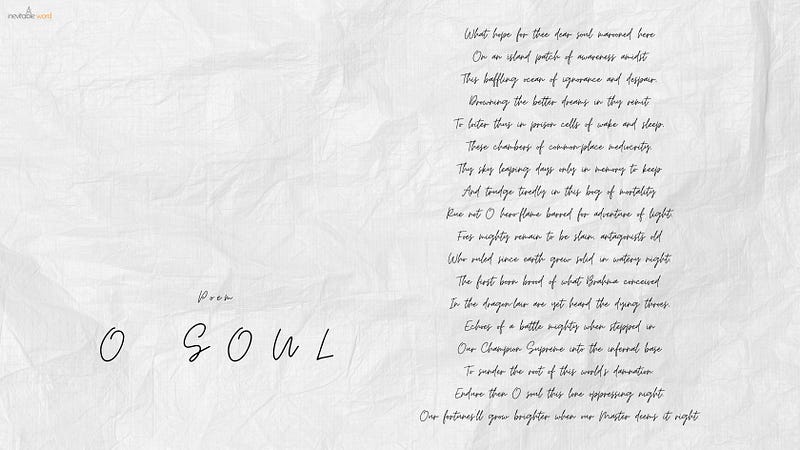 inevitable word
Poem
O SOUL
What hope for thee dear soul marooned here
On an island patch of awareness amidst
This baffling ocean of ignorance and despair.
Drowning the better dreams in thy remit
To loiter thus in prison cells of wake and sleep.
These chambers of common-place mediocrity.
Thy sky leaping days only in memory to keep
And trudge tiredly in this bog of mortality
Rue not O hero-flame barred for adventure of light.
Foes mighty remain to be slain. antagonists old
Who ruled since earth grew solid in watery night.
The first born brood of what Brahma conceived
In the dragon-lair are yet heard the dying throes.
Echoes of a battle mighty when stepped in
Our Champion Supreme into the infernal base
To sunder the root of this world's damnation.
Endure then O soul this lone oppressing night.
Our fortunes'll grow brighter when our Master deems it right